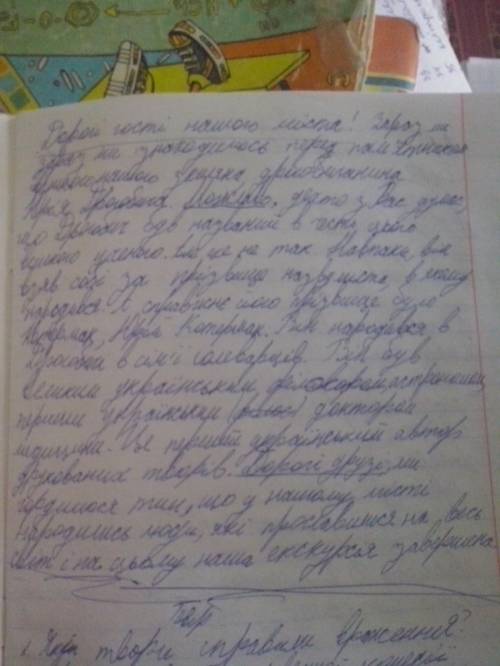 Дорогі гості нашого міста! Зараз ми
зараз ми знаходимось перед пам'ятником
нашого земляка, дрогобичанина
Юрія Дрогобича. Можливо, дехто з Вас думає,
що Дрогобич був названий в честь цього
великого ученого. Але це не так. Навпаки, він
взяв собі за прізвище назву міста, в якому
народився. А справжнє його прізвище було
Котермак, Юрій Котермак. Він народився в
Дрогобичі в сім'ї солеварців. Він був
великим українським філософом, астрономом,
першим українським доктором
медицини. Це перший український автор
друкованих творів. Дорогі друзі, ми
гордимося тим, що у нашому місті
народились люди, які прославились на весь
світ і на цьому наша екскурсія завершена
твори справили враження?